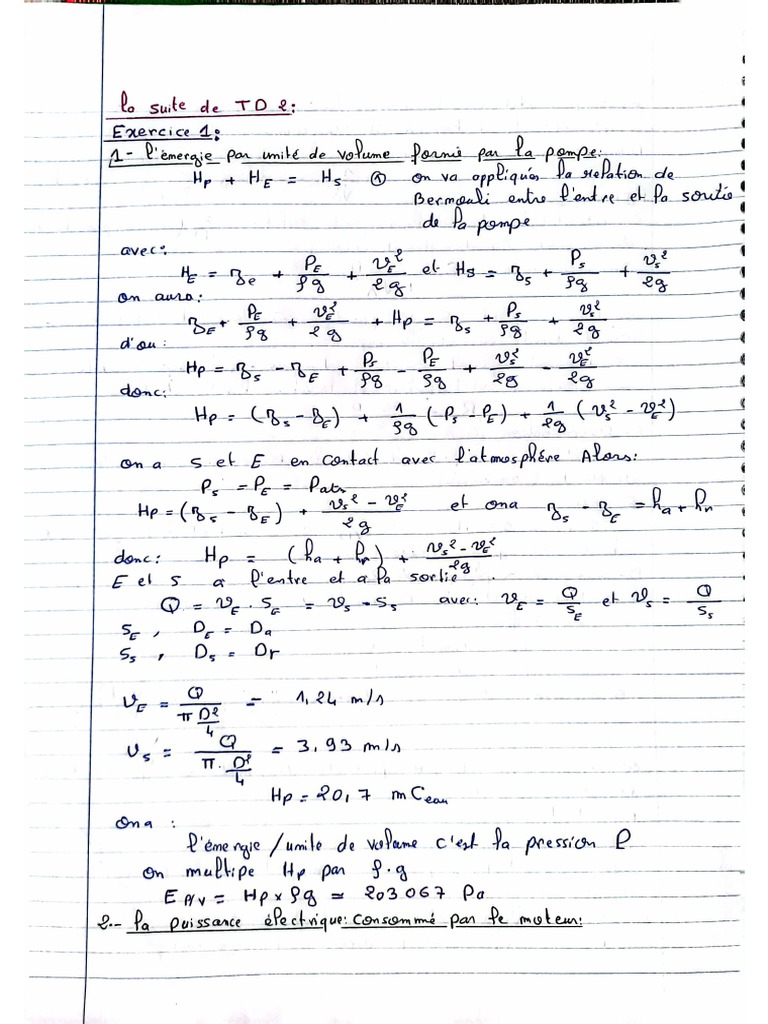 la suite de TD 2:
Exercice 1:
1- l'énergie par unité de volume fornié par la pompe:
Hp + H_E = H_S ① on va appliqués la relation de
Bernouli entre l'entre et la soutie
de la pompe
avec:
H_E = z_e + P_E/ρg + v_E²/2g et H_S = z_s + P_s/ρg + v_s²/2g
on aura:
z_E + P_E/ρg + v_E²/2g + Hp = z_s + P_s/ρg + v_s²/2g
d'ou:
Hp = z_s - z_E + P_s/ρg - P_E/ρg + v_s²/2g - v_E²/2g
donc:
Hp = (z_s - z_E) + 1/ρg (P_s - P_E) + 1/2g (v_s² - v_E²)
on a S et E en contact avec l'atmosphére Alors:
P_s = P_E = Patm
Hp = (z_s - z_E) + (v_s² - v_E²)/2g et ona z_s - z_E = ha + hr
donc: Hp = (ha + hr) + (v_s² - v_E²)/2g
E et S a l'entre et a la sortie.
Q = v_E . S_E = v_s - S_s avec: v_E = Q/S_E et v_s = Q/S_s
S_E , D_E = Da
S_s , D_s = Dr
v_E = Q/(π D²/4) = 1,24 m/s
v_s = Q/(π . D²/4) = 3,93 m/s
Hp = 20,7 mCeau
ona :
l'émergie /unite de volume c'est la pression P
on multipe Hp par ρ.g
E_P/V = Hp x ρg = 203067 Pa
2-- la puissance électrique: consommé par le moteur: